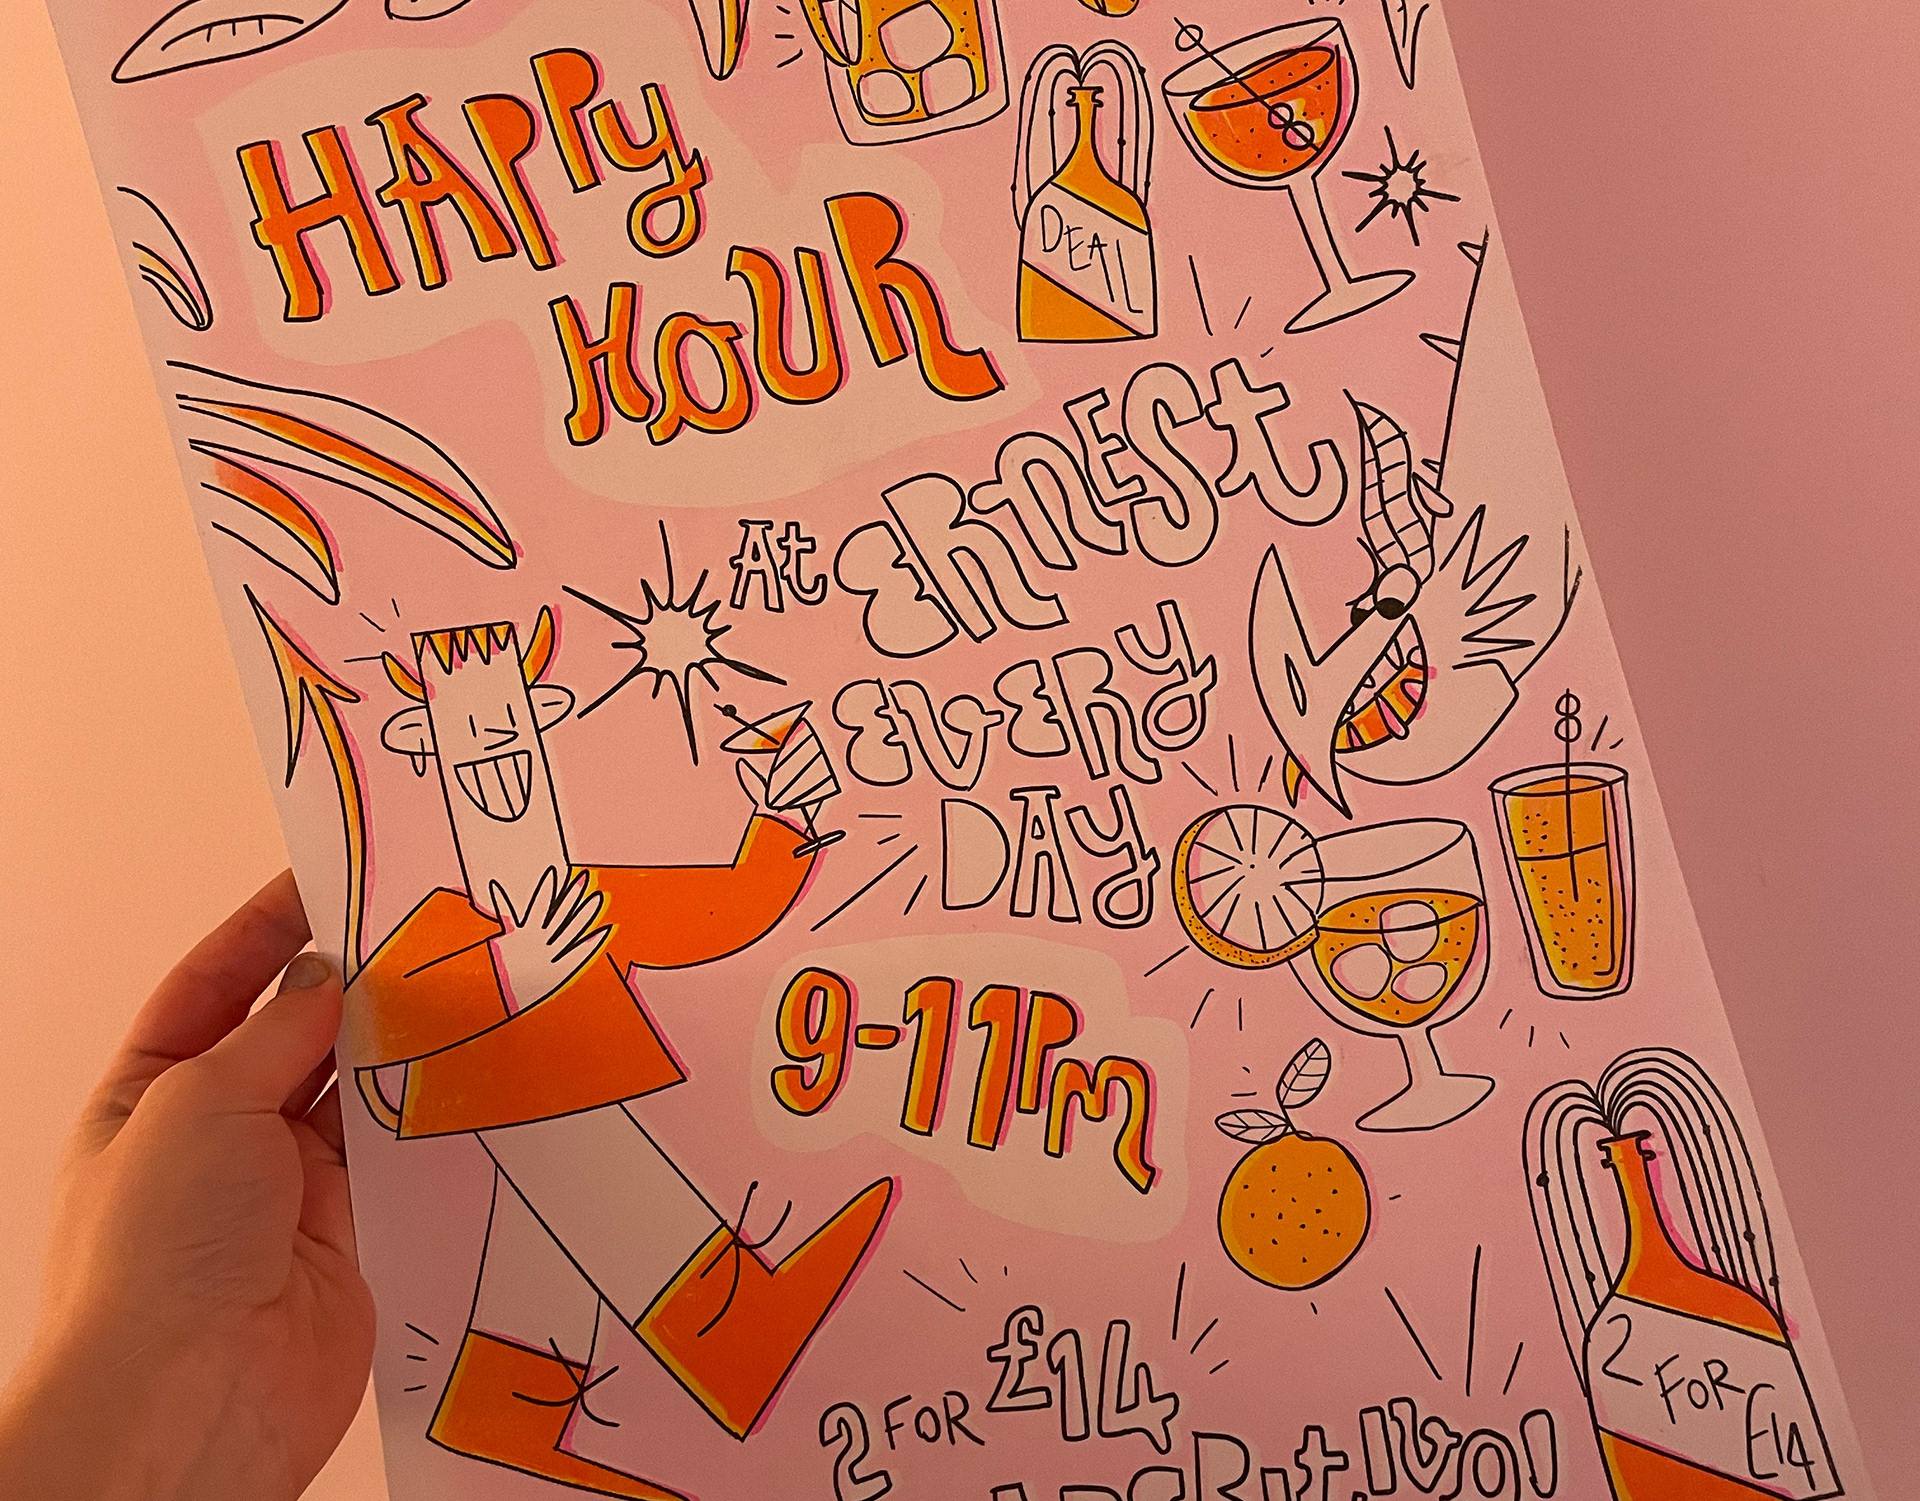 HAPPy
HOUR
DEAL
At ERNESt
EVERy
DAy
9-11Pm
2 FOR £14
APERItIVO!
2 FOR
£14